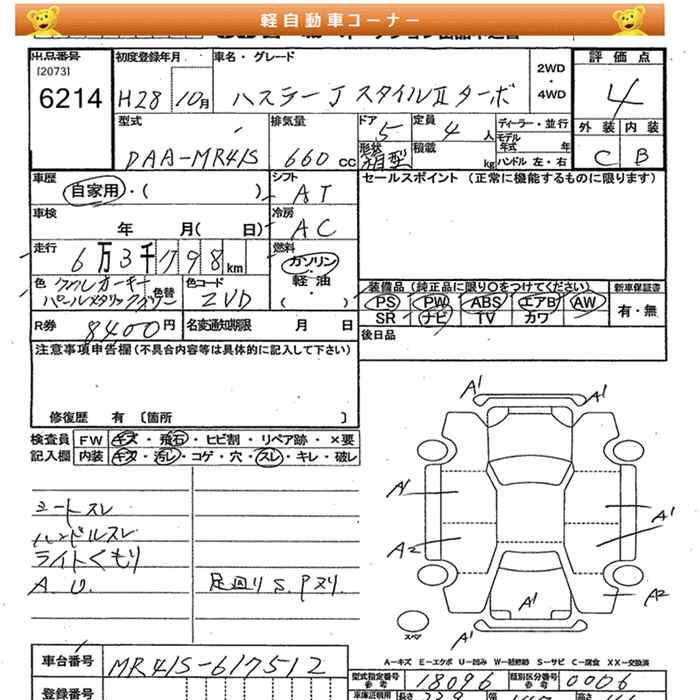 軽自動車コーナー
出品番号
[2073]
6214
初度登録年月
H28 10月
車名・グレード
ハスラーJ スタイルⅡ ターボ
2WD
・
4WD
評価点
4
外装 内装
C B
型式
DAA-MR41S
排気量
660 cc
ドア
5
形状
箱型
定員
4人
積載
kg
ディーラー・並行
モデル
年式 年
ハンドル 左・右
車歴
自家用・( )
シフト
AT
セールスポイント (正常に機能するものに限ります)
車検
年 月( 日)
冷房
AC
走行
6万3千798km
燃料
ガソリン・
軽油・
( )
色 クールカーキー
パールメタリックグリーン
色替
色コード
ZVD
装備品 (純正品に限り〇をつけてください)
PS PW ABS エアB AW
SR ナビ TV カワ
新車保証書
有・無
R券
8400円
名変通知期限 月 日
後日品
注意事項申告欄 (不具合内容等は具体的に記入して下さい)
修復歴 有 〔箇所 〕
検査員 FW キズ・飛石・ヒビ割・リペア跡・×要
記入欄 内装 キズ・汚レ・コゲ・穴・スレ・キレ・破レ
シートスレ
ハンドルスレ
ライトくもり
A.U. 足回りS.Pヌリ
A1
A1
A1
A1
A2
A2
A1
A1
スペア
A…キズ E…エクボ U…凹み W…軽補修 S…サビ C…腐食 XX…交換済
車台番号
MR41S-617512
型式指定番号
参考
18096
類別区分番号
参考
0006
登録番号
車庫証明用
長さ
339
幅
高さ